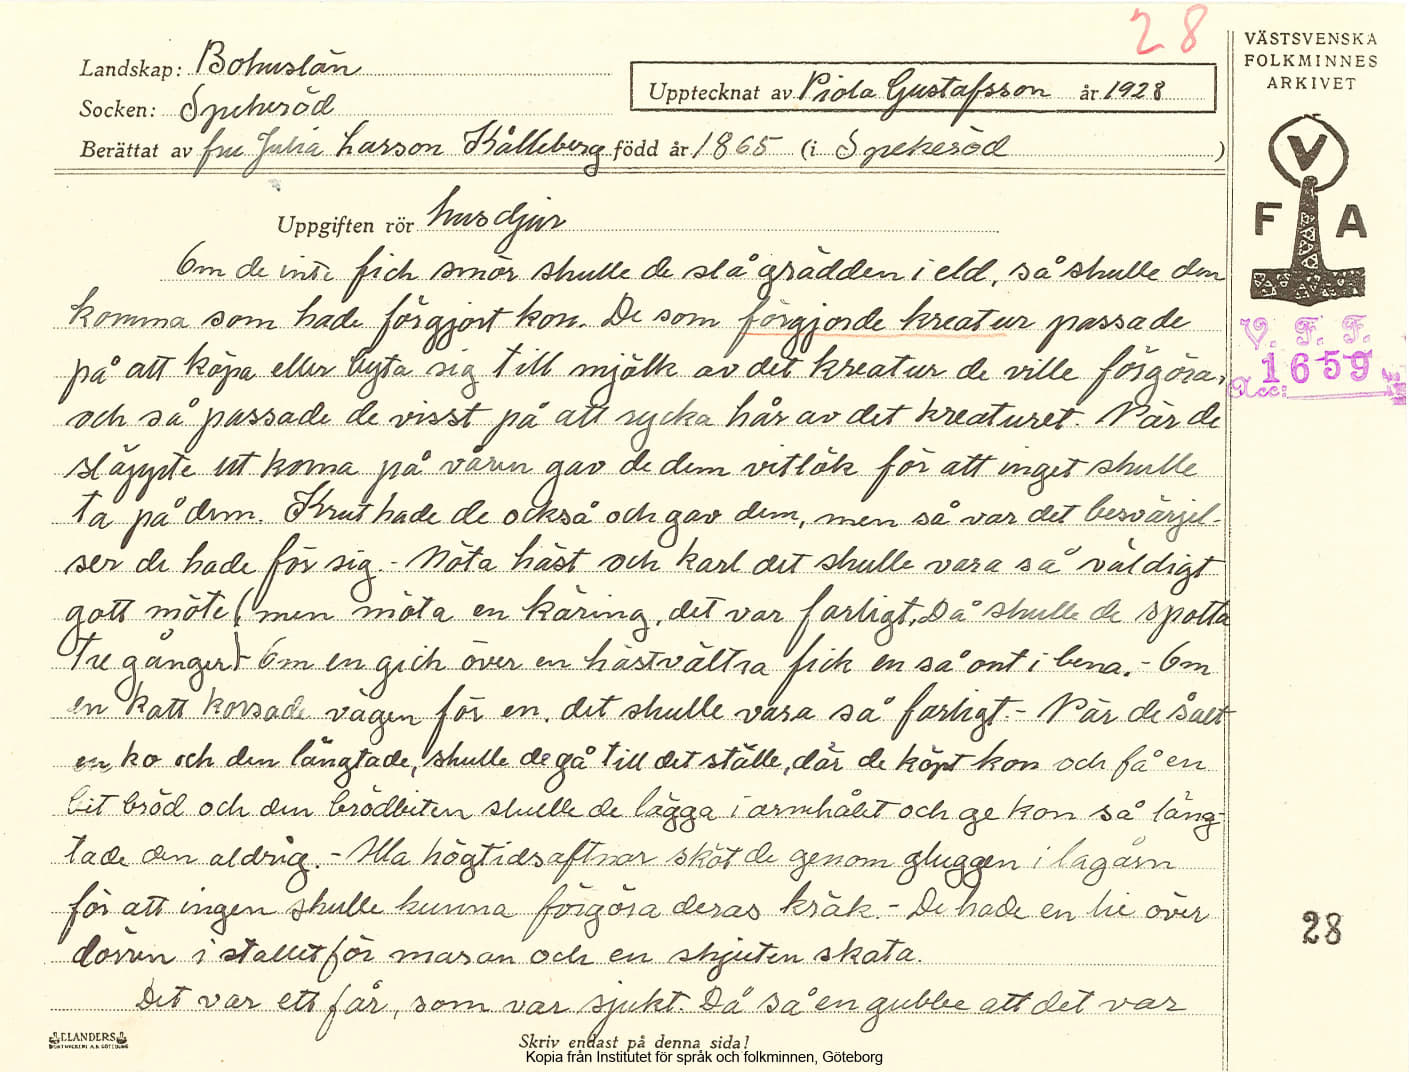 28
VÄSTSVENSKA
FOLKMINNES
ARKIVET
Landskap: Bohuslän
Socken: Spekeröd
Upptecknat av Viola Gustafsson år 1928
Berättat av fru Julia Larson Kålleberg född år 1865 (i Spekeröd)
V
F A
V. F. F.
1659
Acc:
Uppgiften rör husdjur
Om de inte fick smör skulle de slå grädden i eld, så skulle den
komma som hade förgjort kon. De som förgjorde kreatur passade
på att köpa eller byta sig till mjölk av det kreatur de ville förgöra,
och så passade de visst på att rycka hår av det kreaturet. När de
släppte ut korna på våren gav de dem vitlök för att inget skulle
ta på dem. Krut hade de också och gav dem, men så var det besvärjel-
ser de hade för sig. - Möta häst och karl det skulle vara så väldigt
gott möte (men möta en käring, det var farligt. Då skulle de spotta
tre gånger) - Om en gick över en hästvältra fick en så ont i bena. - Om
en katt korsade vägen för en, det skulle vara så farligt. - När de sålt
en ko och den längtade, skulle de gå till det ställe, där de köpt kon och få en
bit bröd och den brödbiten skulle de lägga i armhålet och ge kon så läng-
tade den aldrig. - Alla högtidsaftnar sköt de genom gluggen i lagårn
för att ingen skulle kunna förgöra deras kräk. - De hade en lie över
dörren i stallet för maran och en skjuten skata.
Det var ett får, som var sjukt. Då sa en gubbe att det var
28
ELANDERS
BOKTRYCKERI A.B. GÖTEBORG
Skriv endast på denna sida!
Kopia från Institutet för språk och folkminnen, Göteborg